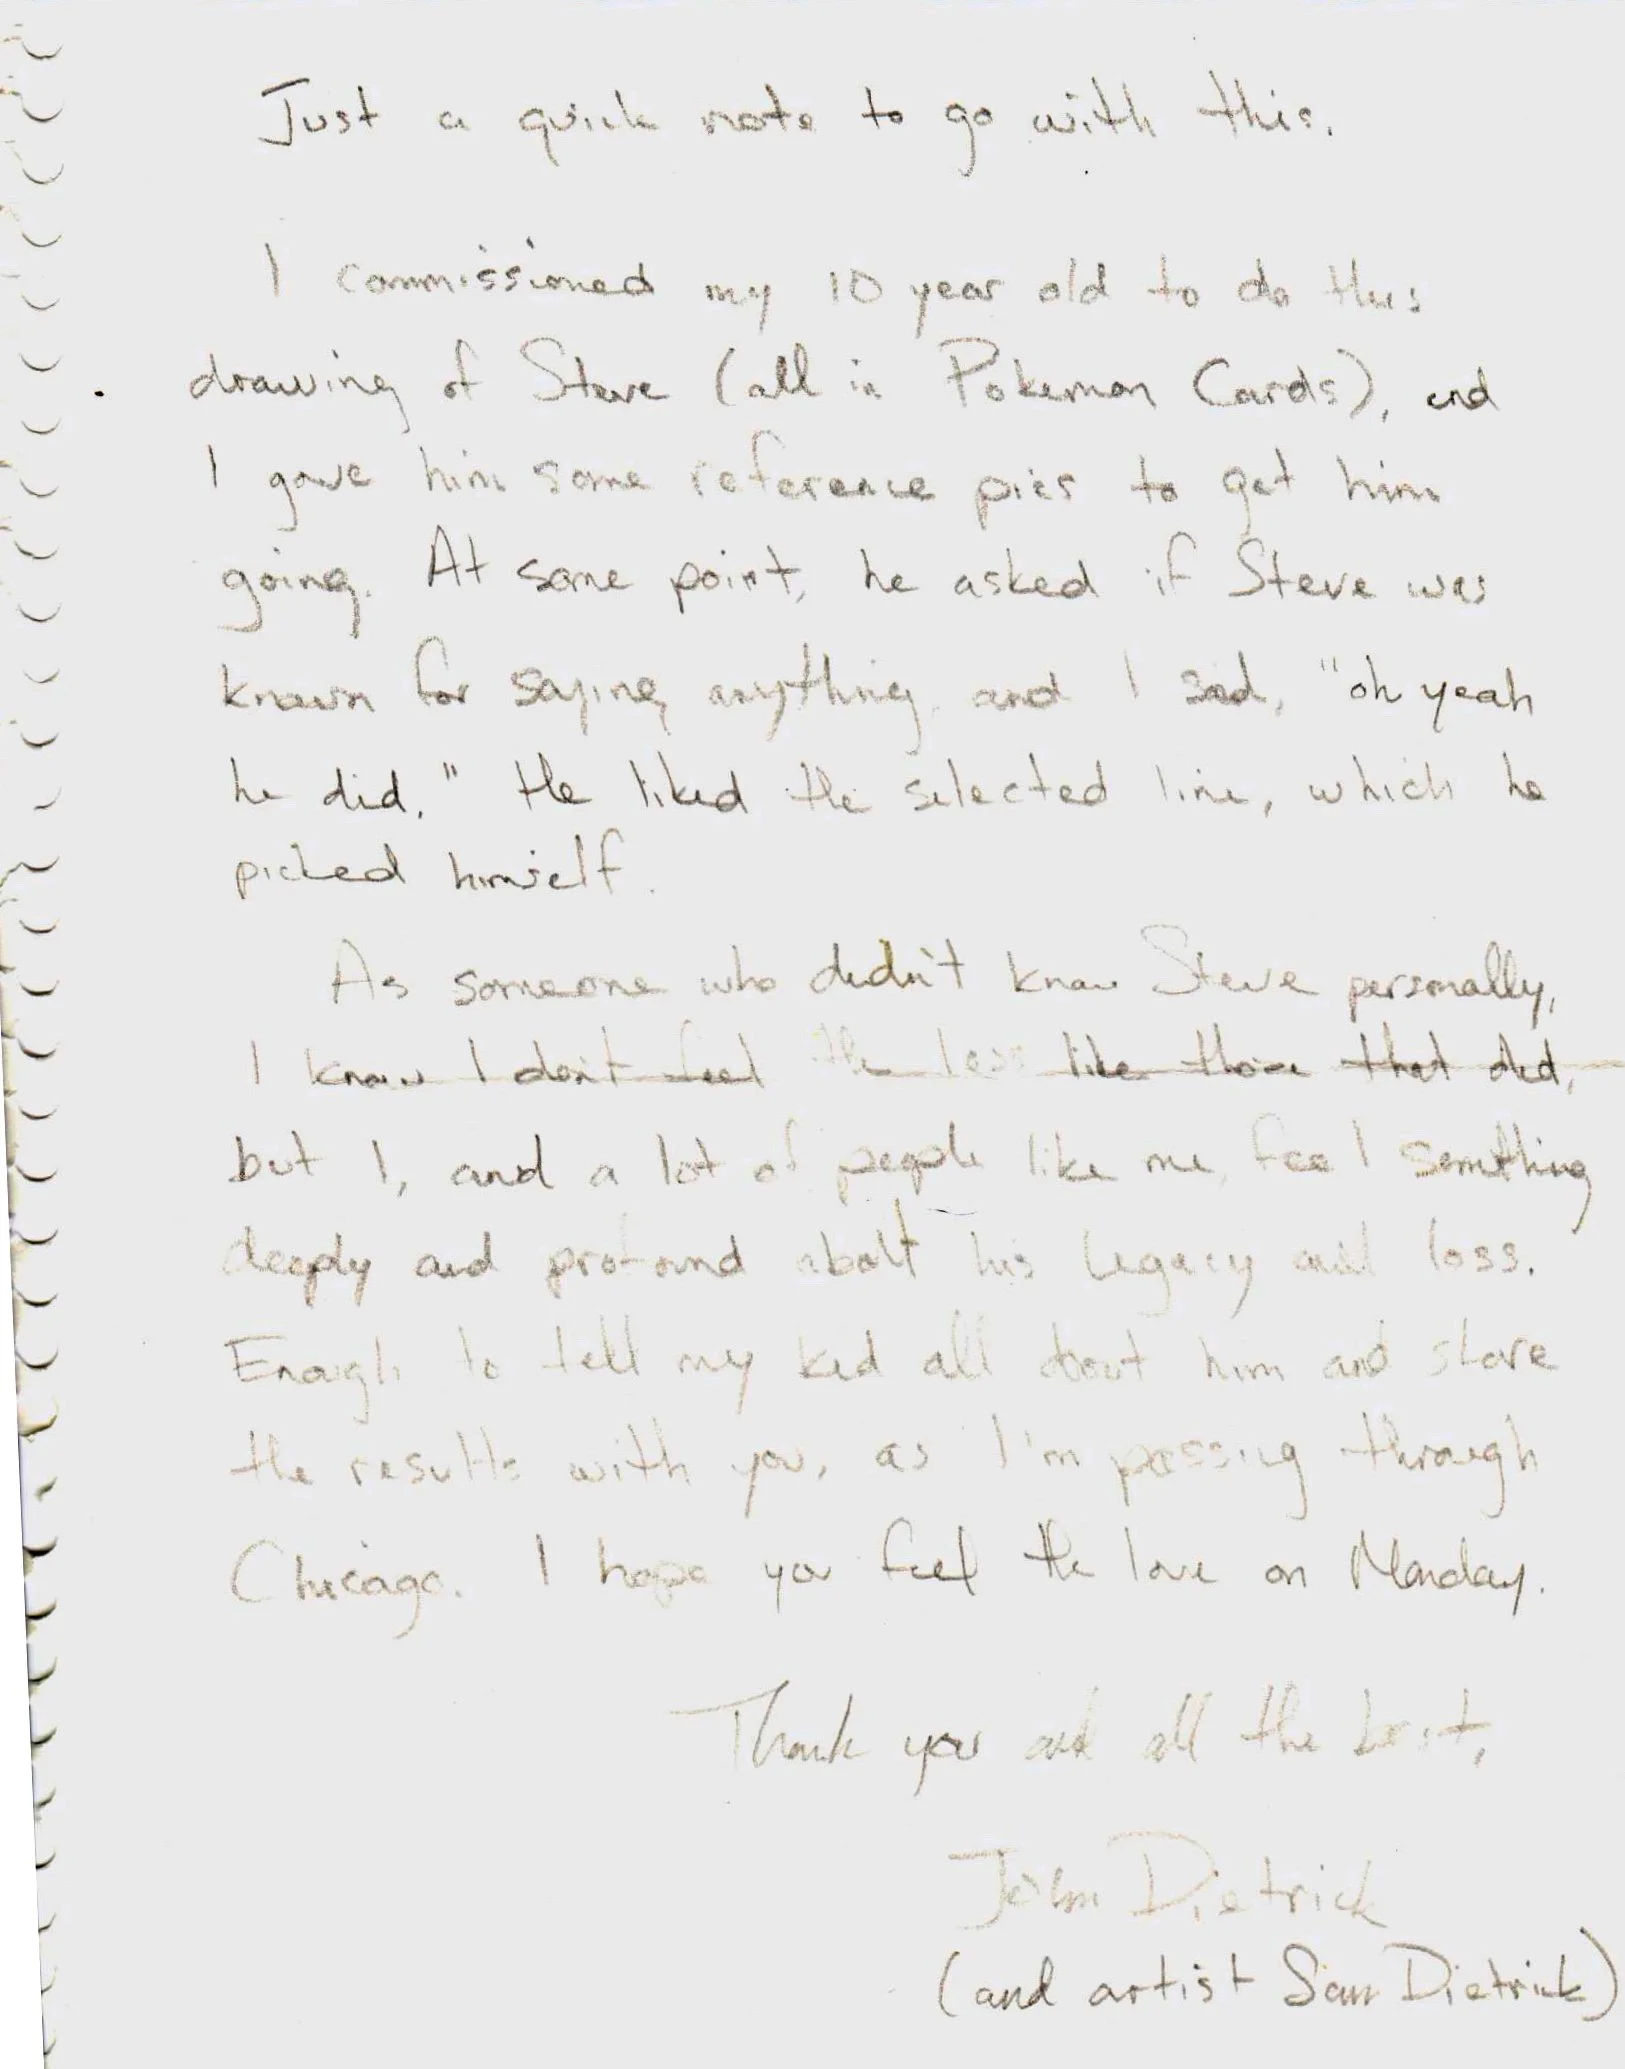 Just a quick note to go with this.
I commissioned my 10 year old to do this
drawing of Steve (all in Pokemon Cards), and
I gave him some reference pics to get him
going. At some point, he asked if Steve was
known for saying anything, and I said, "oh yeah
he did." He liked the selected line, which he
picked himself.
As someone who didn't know Steve personally,
I know I don't feel the loss like those that did,
but I, and a lot of people like me, feel something
deeply and profound about his legacy and loss.
Enough to tell my kid all about him and share
the results with you, as I'm passing through
Chicago. I hope you feel the love on Monday.
Thank you and all the best,
John Dietrick
(and artist Sam Dietrick)